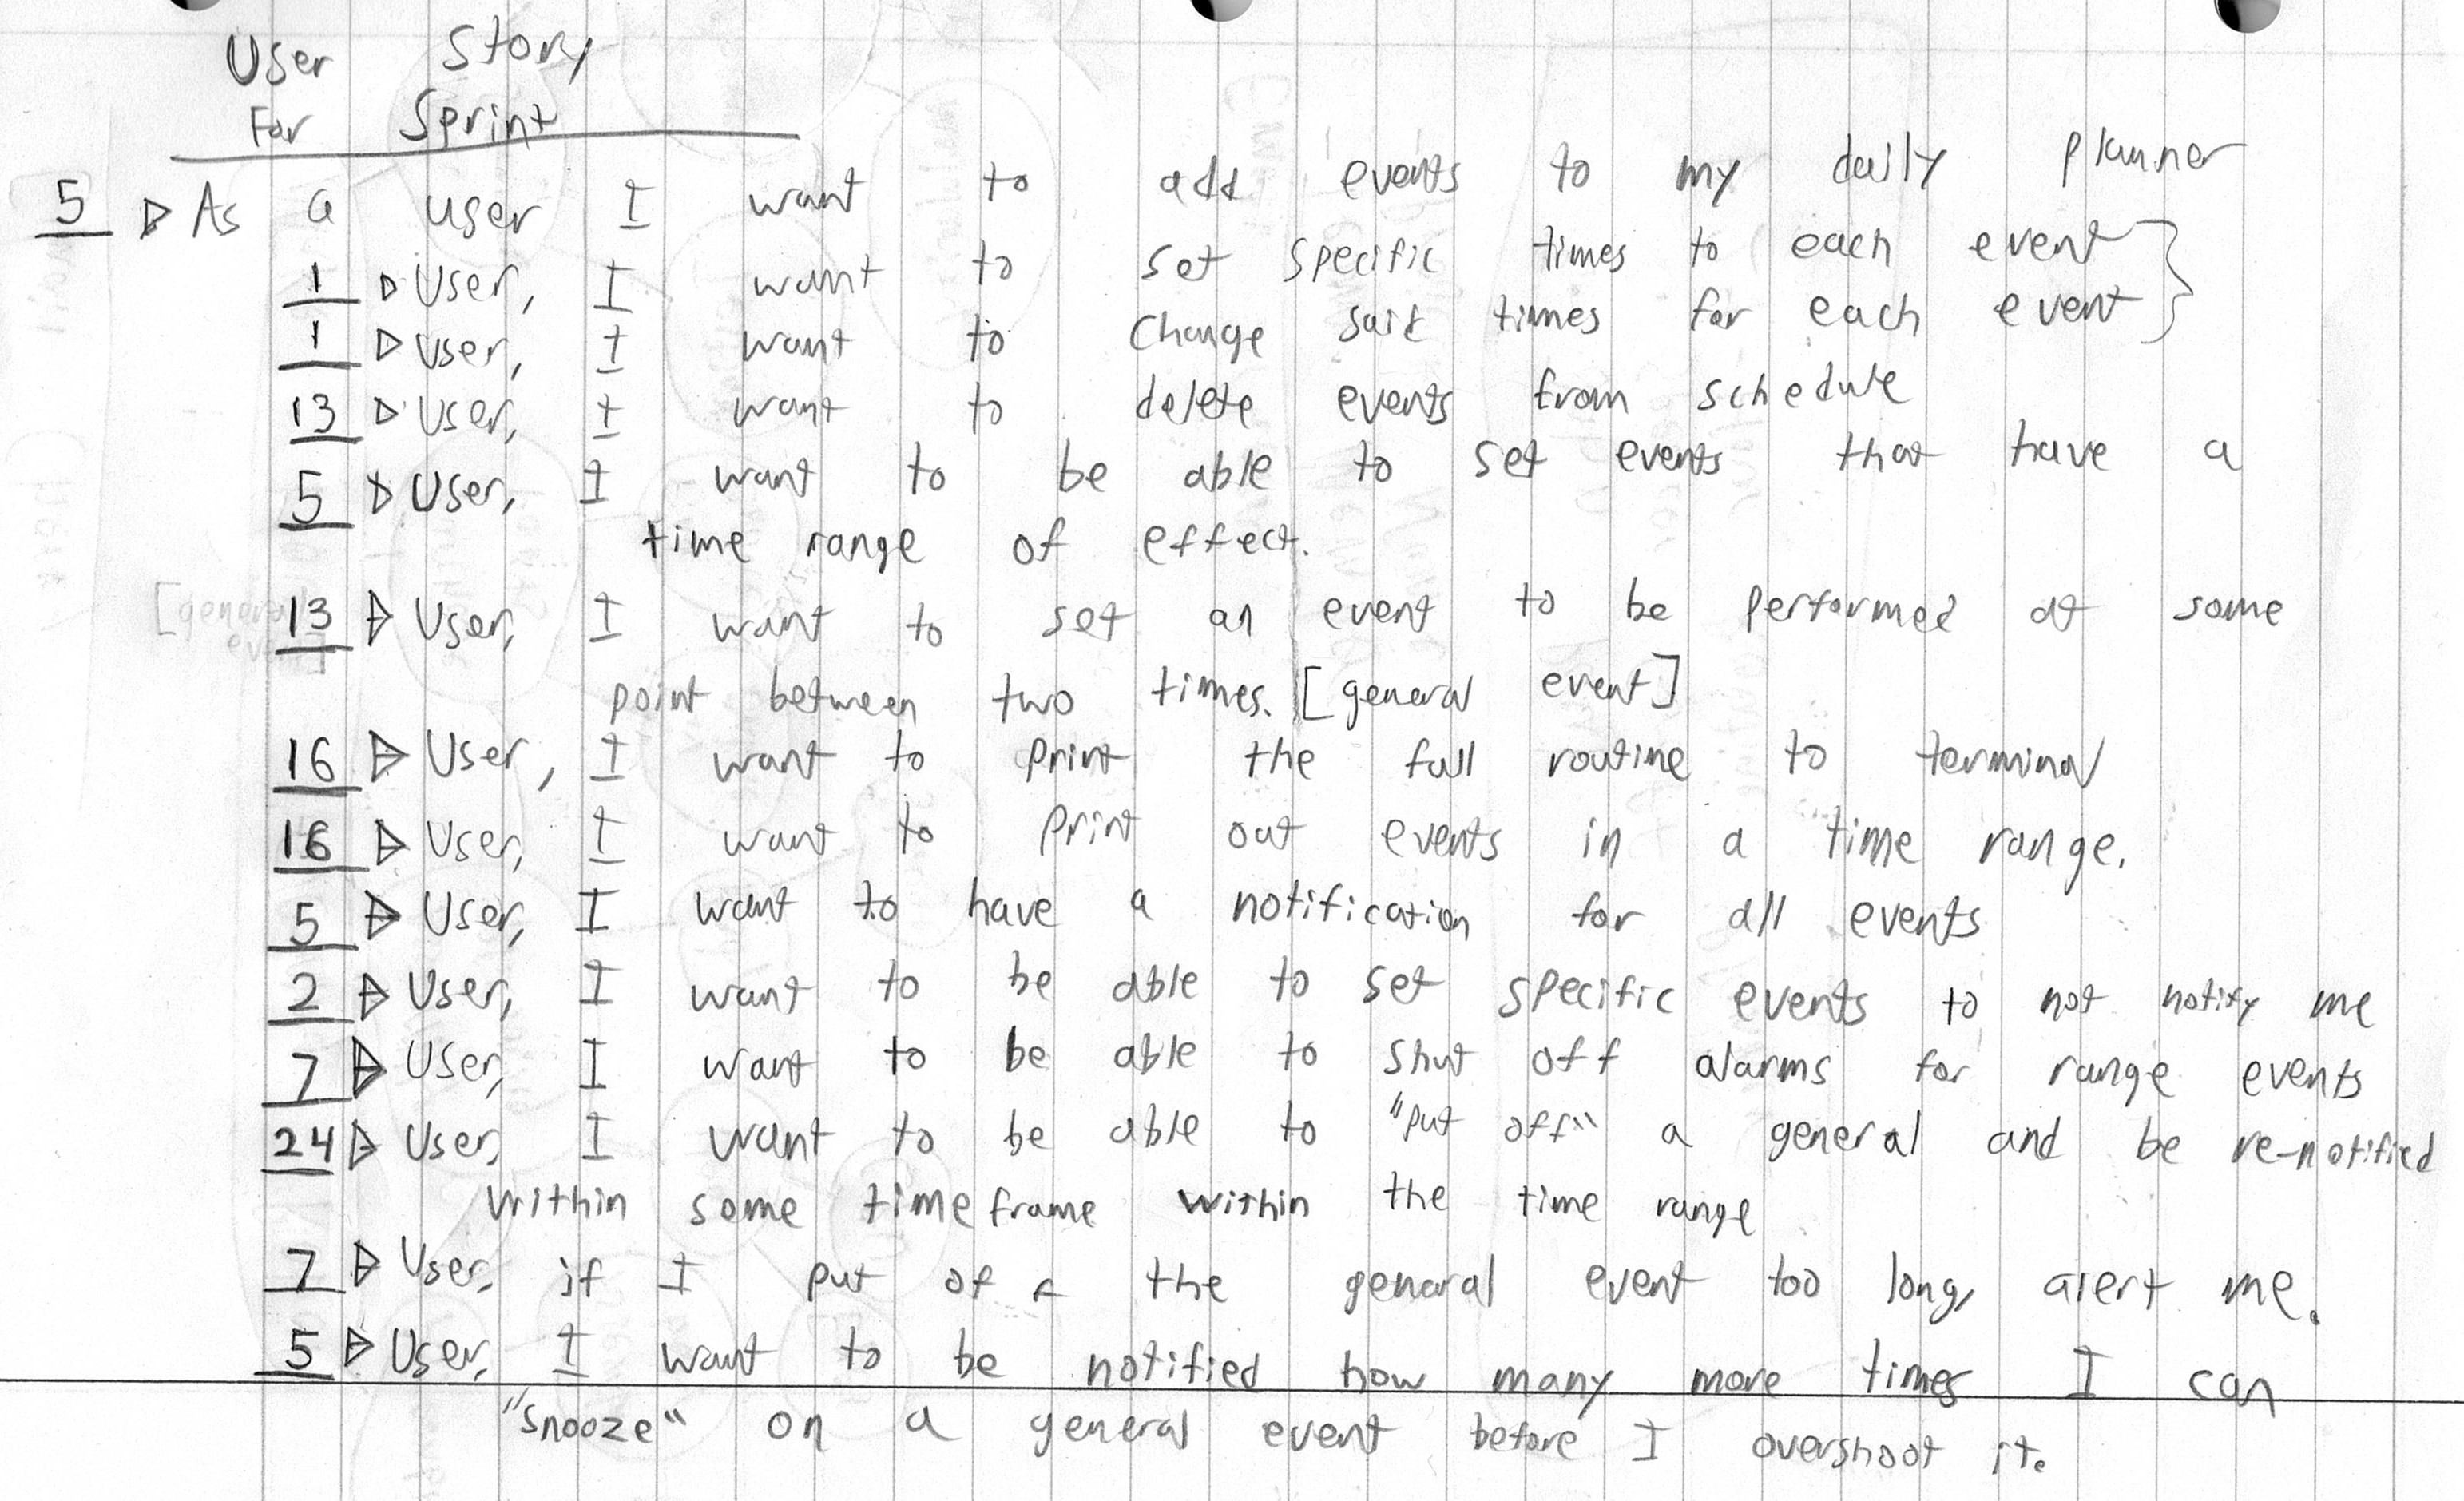 User Story
For Sprint
5 ▷ As a user I want to add events to my daily planner
1 ▷ User, I want to set specific times to each event }
1 ▷ User, I want to change said times for each event }
13 ▷ User, I want to delete events from schedule
5 ▷ User, I want to be able to set events that have a
time range of effect.
13 ▷ User, I want to set an event to be performed at some
point between two times. [general event]
16 ▷ User, I want to print the full routine to terminal
16 ▷ User, I want to print out events in a time range.
5 ▷ User, I want to have a notification for all events
2 ▷ User, I want to be able to set specific events to not notify me
7 ▷ User, I want to be able to shut off alarms for range events
24 ▷ User, I want to be able to "put off" a general and be re-notified
within some timeframe within the time range
7 ▷ User, if I put off the general event too long, alert me.
5 ▷ User, I want to be notified how many more times I can
"snooze" on a general event before I overshoot it.